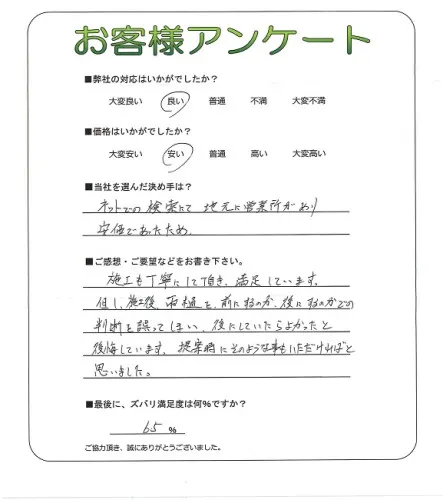 お客様アンケート
■弊社の対応はいかがでしたか?
大変良い 良い 普通 不満 大変不満
■価格はいかがでしたか?
大変安い 安い 普通 高い 大変高い
■当社を選んだ決め手は?
ネットでの検索にて 地元に営業所があり
安価であったため。
■ご感想・ご要望などをお書き下さい。
施工も丁寧にして頂き、満足しています。
但し、施工後、雨樋を、前にするのか、後にするのかでの
判断を誤ってしまい、後にしていたらよかったと
後悔しています。提案時にそのような事もいただければと
思いました。
■最後に、ズバリ満足度は何%ですか?
65 %
ご協力頂き、誠にありがとうございました。